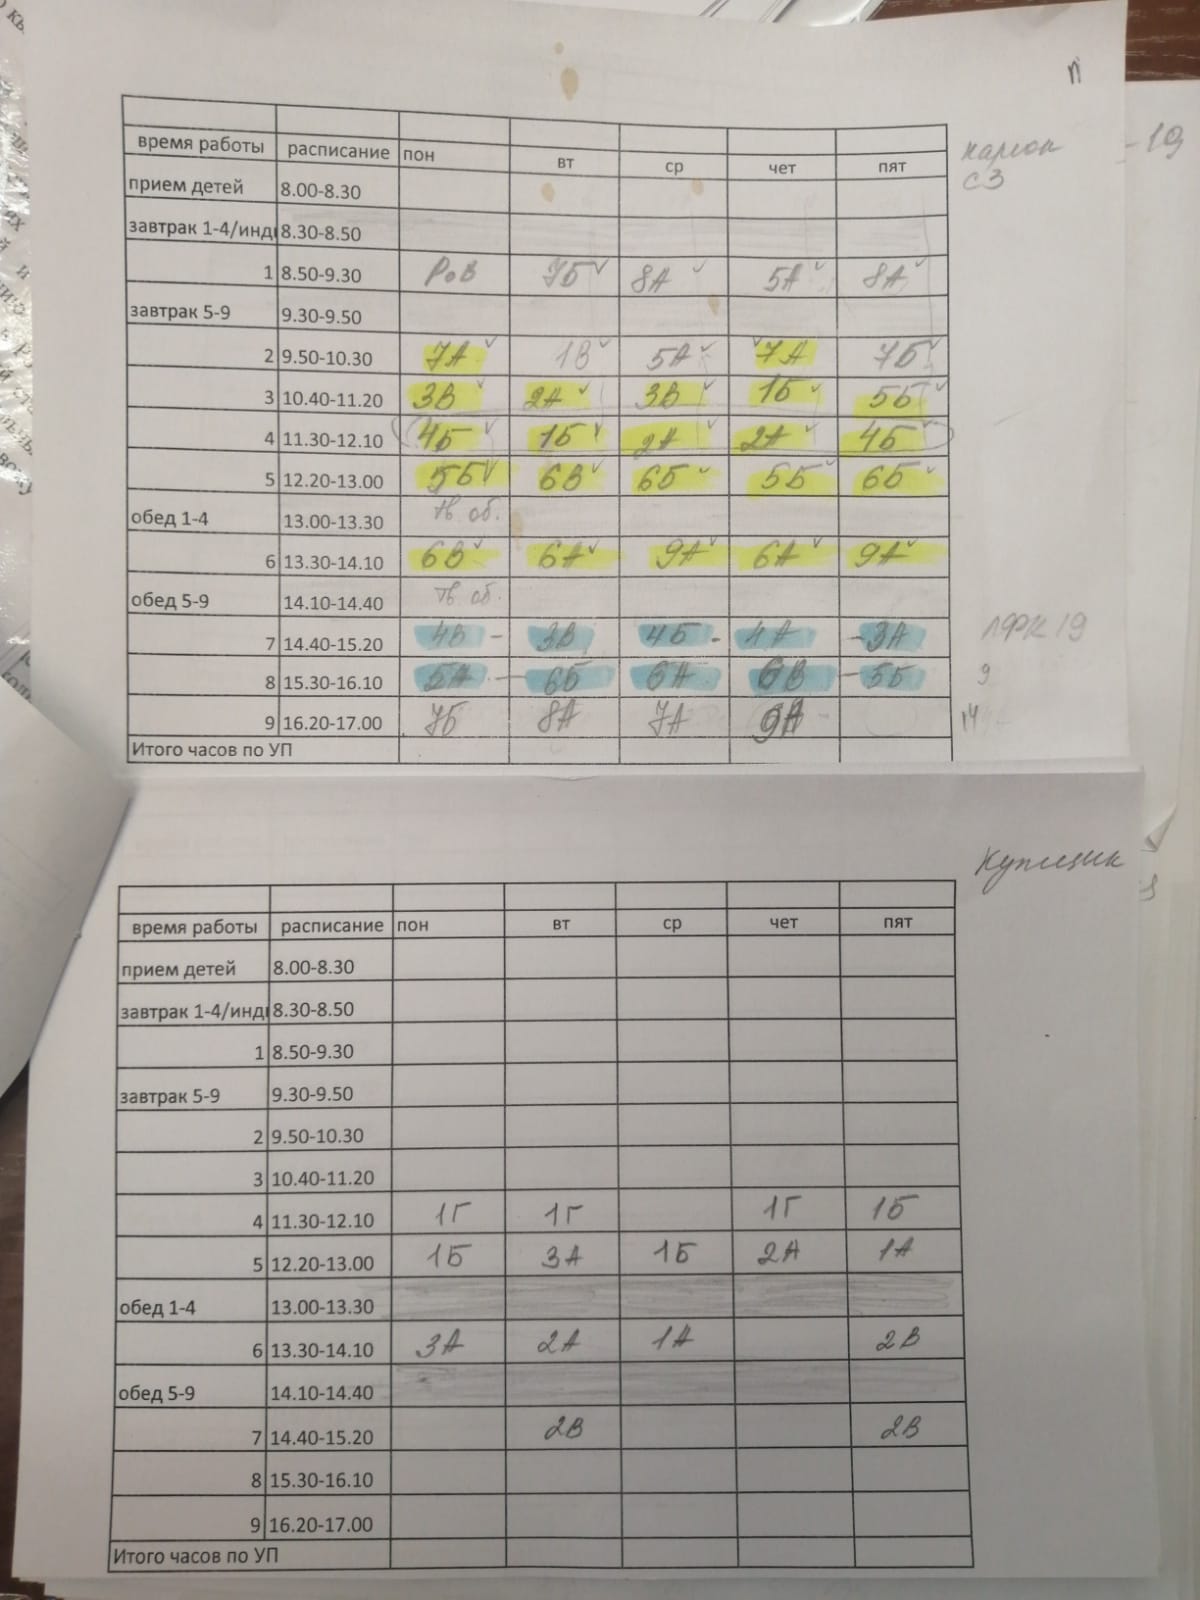 п
время работы расписание пон вт ср чет пят
- 19
прием детей 8.00-8.30
с3
завтрак 1-4/инд 8.30-8.50
1 8.50-9.30 РоВ 7Б 8А 5А 8А
завтрак 5-9 9.30-9.50
2 9.50-10.30 7А 1В 5А 7А 7Б
3 10.40-11.20 3В 2А 3В 1Б 5Б
4 11.30-12.10 4Б 1Б 2А 2А 4Б
5 12.20-13.00 5Б 6В 6Б 5Б 6Б
обед 1-4 13.00-13.30 тв об.
6 13.30-14.10 6В 6А 9А 6А 9А
обед 5-9 14.10-14.40 тв об.
7 14.40-15.20 4В - 3В 4Б - 4А - 3А ЛФК 19
8 15.30-16.10 5А - 6Б 6А 6В - 5Б 9
9 16.20-17.00 7Б 8А 7А 9А 14
Итого часов по УП
Купщик
время работы расписание пон вт ср чет пят
прием детей 8.00-8.30
завтрак 1-4/инд 8.30-8.50
1 8.50-9.30
завтрак 5-9 9.30-9.50
2 9.50-10.30
3 10.40-11.20
4 11.30-12.10 1Г 1Г 1Г 1Б
5 12.20-13.00 1Б 3А 1Б 2А 1А
обед 1-4 13.00-13.30
6 13.30-14.10 3А 2А 1А 2В
обед 5-9 14.10-14.40
7 14.40-15.20 2В 2В
8 15.30-16.10
9 16.20-17.00
Итого часов по УП